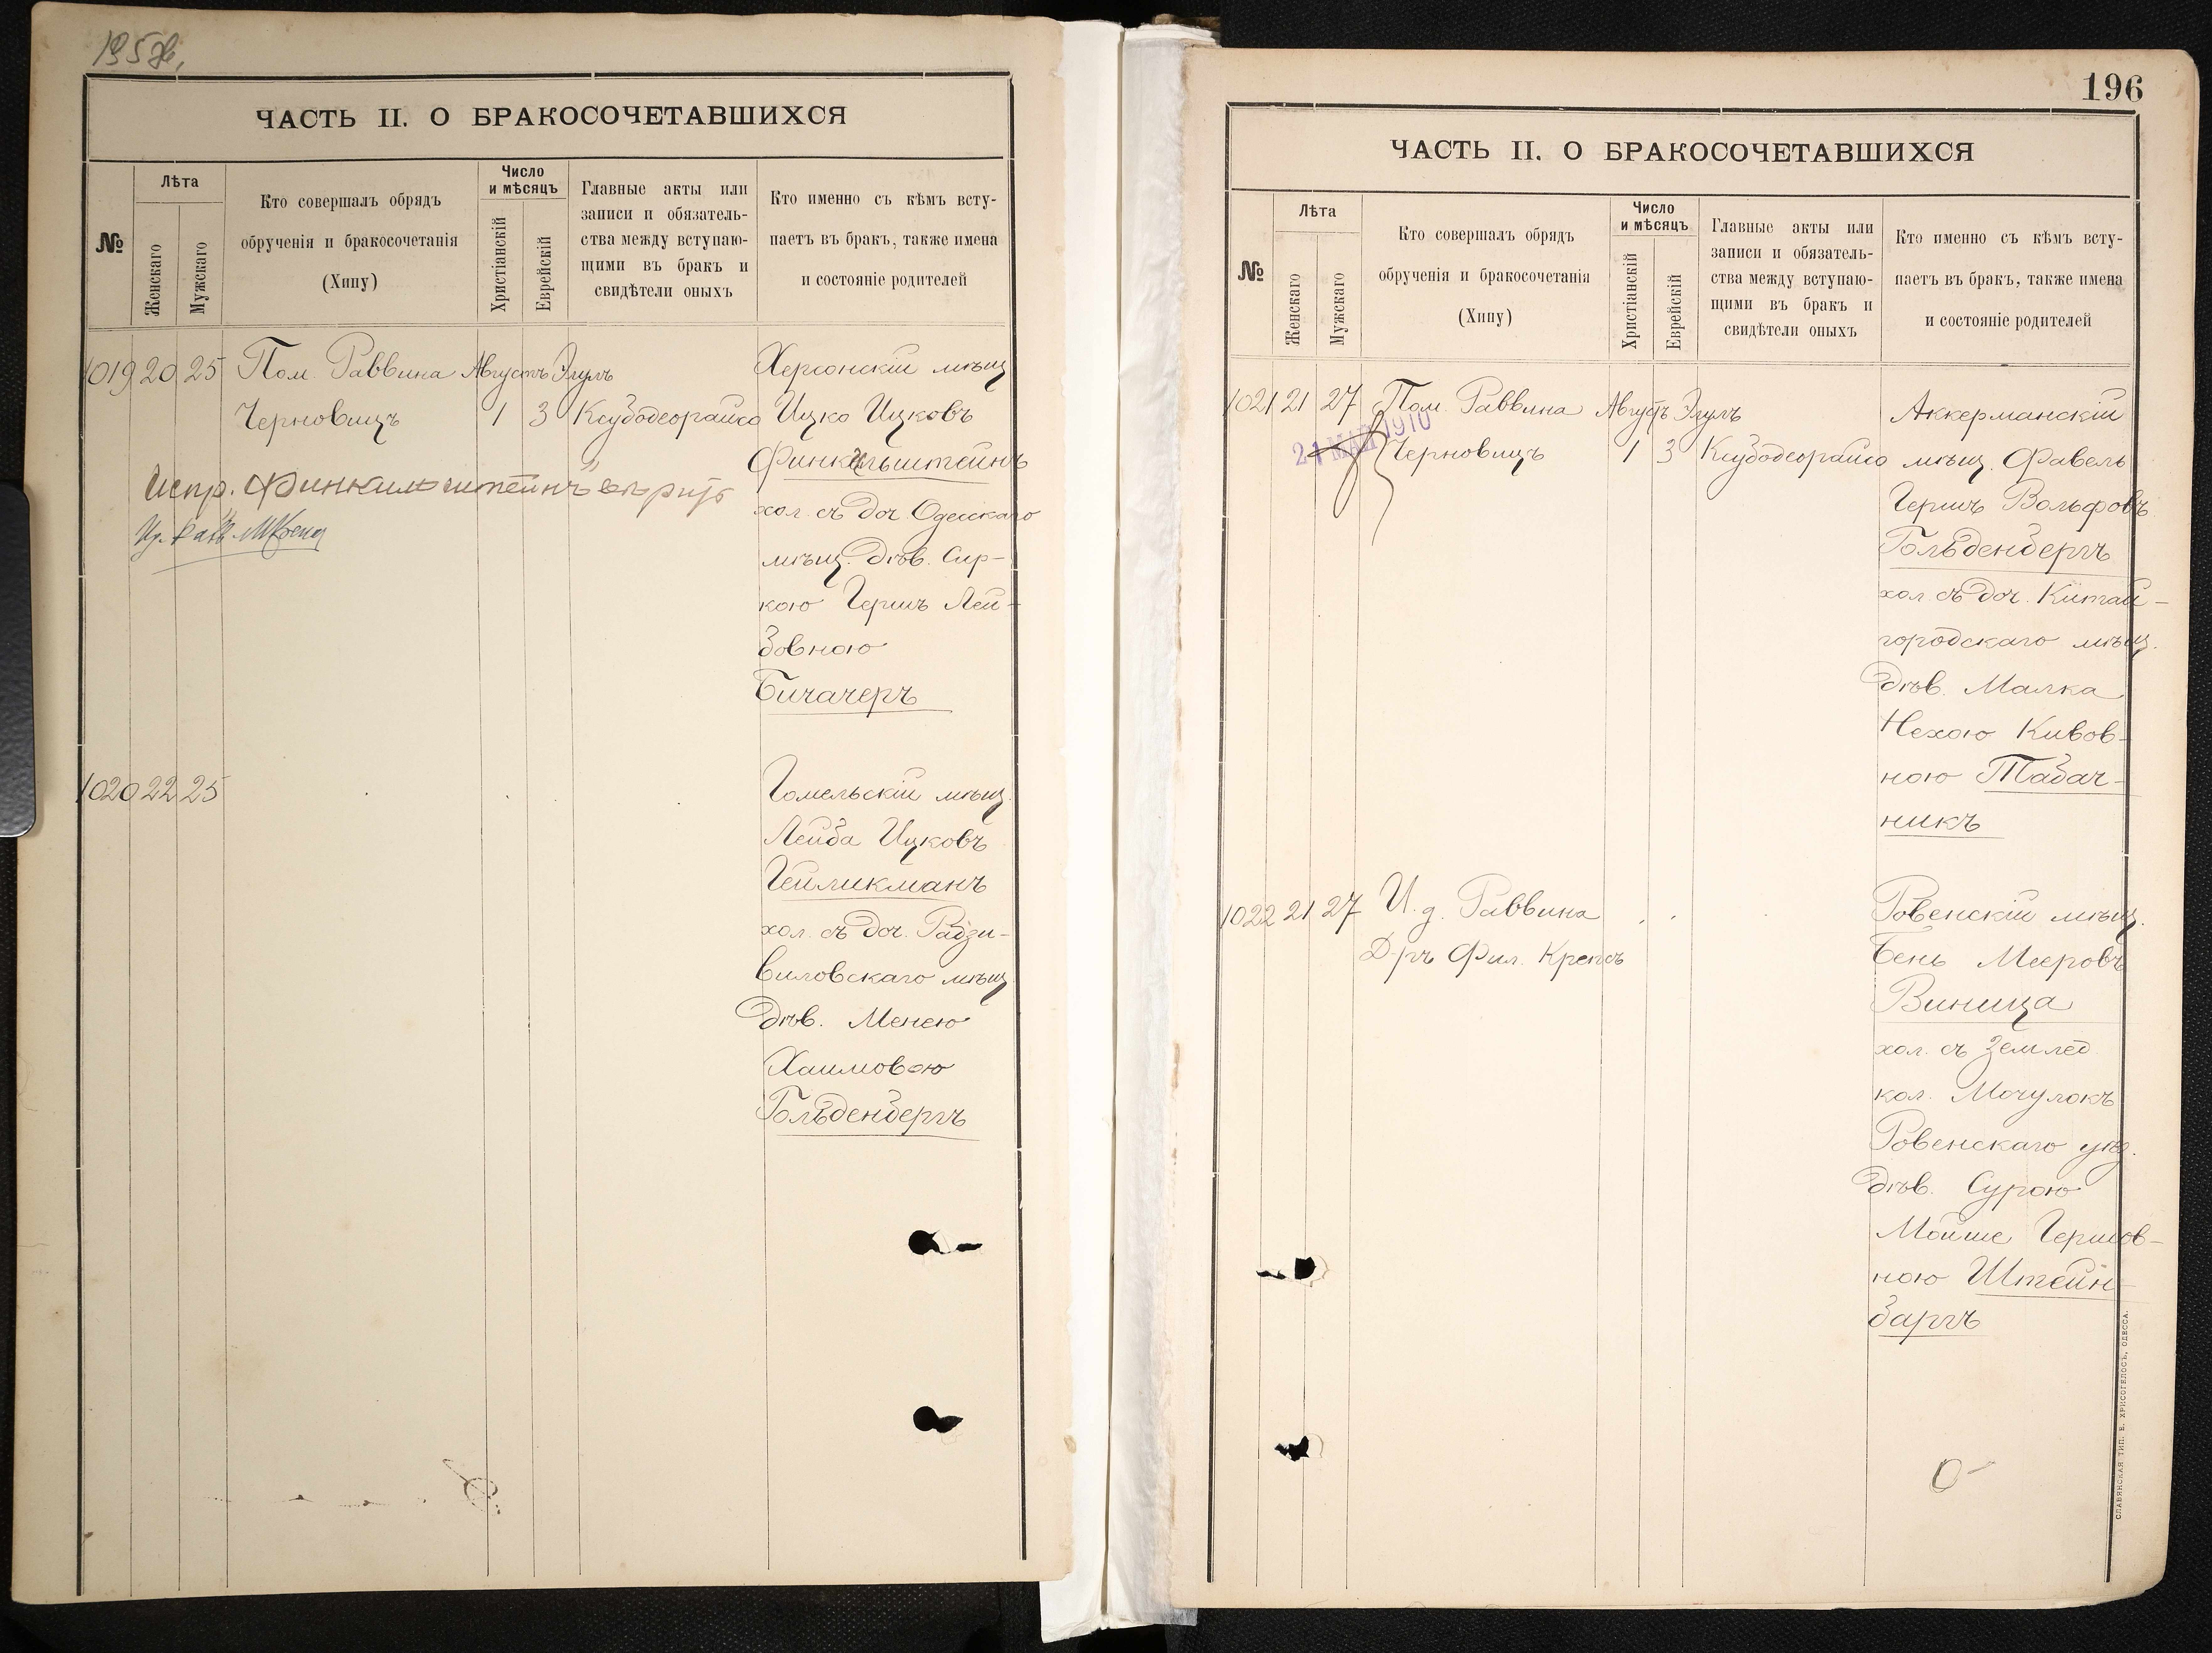 195 об.
ЧАСТЬ II. О БРАКОСОЧЕТАВШИХСЯ
№
Лѣта
Женскаго
Мужскаго
Кто совершалъ обрядъ
обрученія и бракосочетанія
(Хипу)
Число
и мѣсяцъ
Христіанскій
Еврейскій
Главные акты или
записи и обязатель-
ства между вступаю-
щими въ бракъ и
свидѣтели оныхъ
Кто именно съ кѣмъ всту-
паетъ въ бракъ, также имена
и состояніе родителей
1019 20 25 Пом. Раввина Августъ Элулъ
Черновицъ 1 3 Ксубодеорайсо
Херсонскій мѣщ
Ицко Ицковъ
Финкельштейнъ
хол. съ доч. Одесскаго
мѣщ. дѣв. Сир-
кою Гершъ Лей-
зовною
Бичачеръ
Испр. "Финкильштейнъ" вѣрить
1020 22 25
Гомельскій мѣщ.
Лейба Ицковъ
Гейликманъ
хол. съ доч. Радзи-
виловскаго мѣщ
дѣв. Менею
Хаимовою
Гольденбергъ
196
ЧАСТЬ II. О БРАКОСОЧЕТАВШИХСЯ
№
Лѣта
Женскаго
Мужскаго
Кто совершалъ обрядъ
обрученія и бракосочетанія
(Хипу)
Число
и мѣсяцъ
Христіанскій
Еврейскій
Главные акты или
записи и обязатель-
ства между вступаю-
щими въ бракъ и
свидѣтели оныхъ
Кто именно съ кѣмъ всту-
паетъ въ бракъ, также имена
и состояніе родителей
1021 21 27 Пом. Раввина Августъ Элулъ
21 МАЙ 1910
Черновицъ 1 3 Ксубодеорайсо
Аккерманскій
мѣщ. Фавель
Гершъ Вольфовъ
Гольденбергъ
хол. съ доч. Китай-
городскаго мѣщ.
дѣв. Малка
Нехою Кивов-
ною Табач-
никъ
1022 21 27 И. д. Раввина
Д-ръ Фил. Крепсъ
Ровенскій мѣщ.
Бень Мееровъ
Виница
хол. съ землед
кол. Мочулокъ
Ровенскаго уѣз.
дѣв. Сурою
Мойше Гершов-
ною Штейн-
баргъ
СЛАВЯНСКАЯ ТИП. Е. ХРИСОГЕЛОСЪ, ОДЕССА.